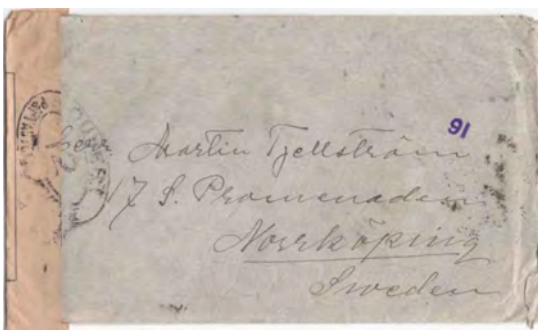 91
Herr Martin Tjellström
17 S. Promenaden
Norrköping
Sweden